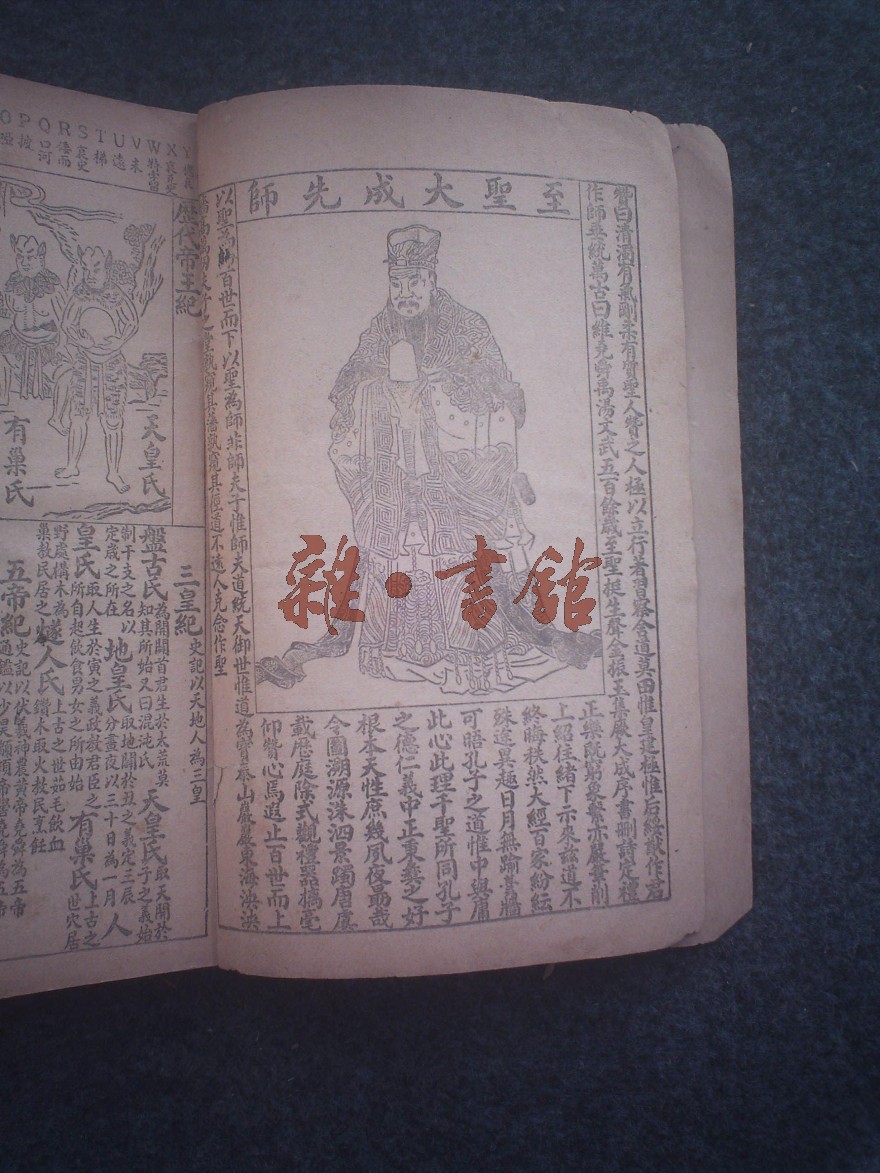 至聖大成先師
贊曰清濁有氣剛柔有質聖人贊之人極以立行著習察舍道莫由惟皇建極惟后綏猷作君
作師垂統萬古曰維堯舜禹湯文武五百餘歲至聖挺生聲金振玉集厥大成序書刪詩定禮
正樂既窮象繫亦嚴筆削
上紹往緒下示來茲道不
終晦秩然大經百家紛紜
殊途異趣日月無踰羹牆
可晤孔子之道惟中與庸
此心此理千聖所同孔子
之德仁義中正秉彝之好
根本天性庶幾夙夜勗哉
令圖溯源洙泗景躅唐虞
載歷庭除式觀禮器摛毫
仰贊心焉遐止百世而上
以聖為師百世而下以聖為師非師夫子惟師天道統天御世惟道為寶泰山巖巖東海泱泱
萬仞夫子之堂孰窺其藩孰窺其徑道不遠人克念作聖
雜·書館
O P Q R S T U V W X Y
歷代帝王紀
天皇氏
有巢氏
三皇紀 史記以天地人為三皇
盤古氏 為開闢首君生於太荒莫
知其所始又曰混沌氏
天皇氏 取天開於
子之義始
制干支之名以
定歲之所在
地皇氏 取地闢於丑之義定三辰
分晝夜以三十日為一月
人
皇氏 取人生於寅之義政教君臣之
所自起飲食男女之所由始
有巢氏 上古之
世穴居
野處構木為
巢教民居之
燧人氏 上古之世茹毛飲血
鑽木取火教民烹飪
五帝紀 史記以伏羲神農黃帝堯舜為五帝
通鑑以少昊顓頊帝嚳堯舜為五帝